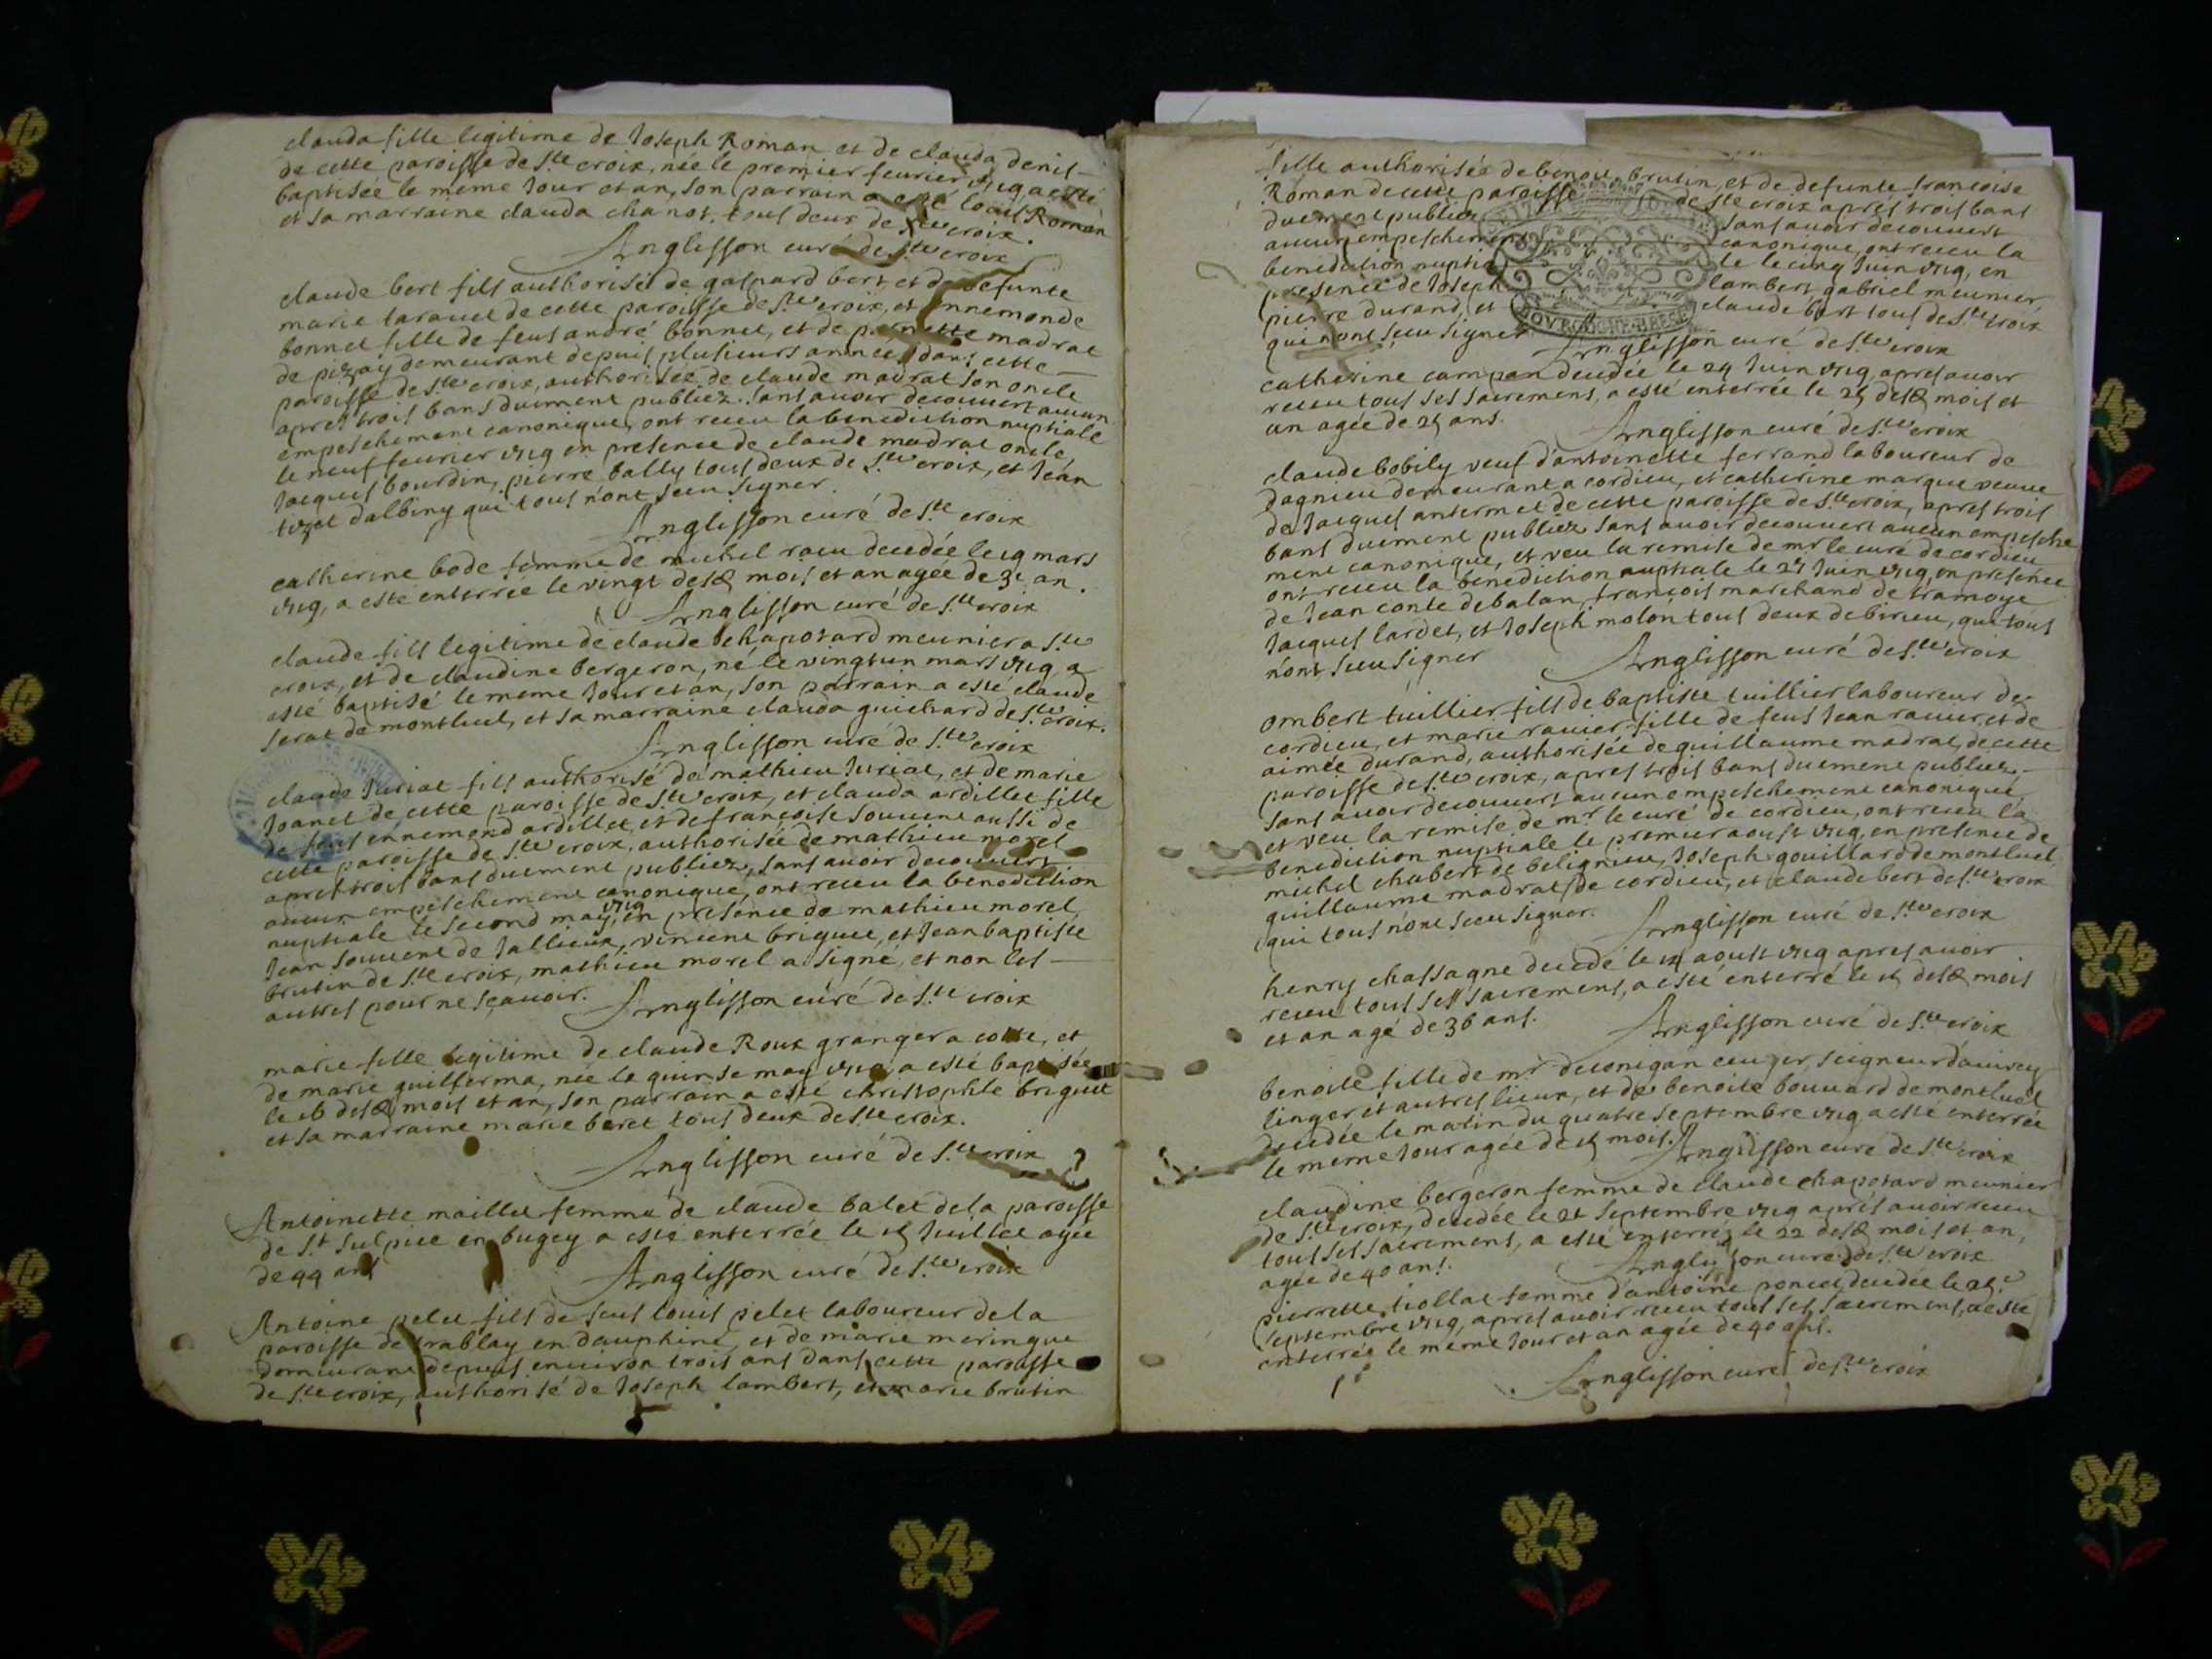 clauda fille legitime de Joseph Roman et de clauda denis
de cette paroisse de Ste croix, née le premier feurier 1719 a esté
baptisée le meme Jour et an, son parrain a esté louis Roman
et sa marraine clauda chanot, tous deux de Ste croix.
Anglisson curé de Ste croix
claude bert fils authorisé de gaspard bert et de defunte
marie laravet de cette paroisse de Ste croix, et ennemonde
bonnet fille de feus andré bonnet, et de pernette madrat
de pizay demeurant depuis plusieurs années dans cette
paroisse de Ste croix, authorisée de claude madrat son oncle
apres trois bans duement publiez sans auoir decouuert aucun
empeschement canonique, ont receu la benediction nuptiale
le neuf feurier 1719 en presence de claude madrat oncle,
Jacques bourdin, pierre bally tous deux de Ste croix, et Jean
tizet dalbiny qui tous n'ont sceu signer.
Anglisson curé de Ste croix
catherine bode femme de michel racu decedée le 19 mars
1719, a esté enterrée le vingt desd mois et an agée de 31 an.
Anglisson curé de Ste croix
claude fils legitime de claude chapotard meunier a Ste
croix, et de claudine bergeron, né le vingtun mars 1719 a
esté baptisé le meme Jour et an, son parrain a esté claude
serat de montluel, et sa marraine clauda guichard de Ste croix.
Anglisson curé de Ste croix
claude Juriat fils authorisé de mathieu Juriat, et de marie
Joanet de cette paroisse de Ste croix, et clauda ardillet fille
de feus ennemond ardillet, et de françoise souuent aussi de
cette paroisse de Ste croix, authorisée de mathieu morel
apres trois bans duement publiez, sans auoir decouuert
aucun empeschement canonique, ont receu la benediction
nuptiale le second may 1719 en presence de mathieu morel,
Jean souuent de Jallieux, vincent briquet, et Jean baptiste
brutin de Ste croix, mathieu morel a signé, et non les
autres pour ne sçauoir. Anglisson curé de Ste croix
marie fille legitime de claude Roux granger a coste, et
de marie guillerma, née le quinse may 1719 a esté baptisée
le 16 desd mois et an, son parrain a esté christophle briquet
et sa marraine marie beret tous deux de Ste croix.
Anglisson curé de Ste croix
Antoinette maillet femme de claude balet de la paroisse
de St sulpice en bugey a esté enterrée le 15 Juillet agée
de 44 ans Anglisson curé de Ste croix
Antoine pelet fils de feus louis pelet laboureur de la
paroisse de trablay en dauphiné, et de marie meringue
demeurant depuis enuiron trois ans dans cette paroisse
de Ste croix, authorisé de Joseph lambert, et marie brutin
fille authorisée de benoit brutin, et de defunte francoise
Roman de cette paroisse de Ste croix apres trois bans
duement publiez sans auoir decouuert
aucun empeschement canonique, ont receu la
benediction nuptiale le cinq Juin 1719, en
presence de Joseph lambert gabriel meunier
pierre durand, et claude bert tous de Ste croix
qui n'ont sceu signer Anglisson curé de Ste croix
catherine campan decedée le 24 Juin 1719 apres auoir
receu tous ses sacremens, a esté enterrée le 25 desd mois et
an agée de 25 ans. Anglisson curé de Ste croix
claude bobily veuf d'antoinette ferrand laboureur de
dagnieu demeurant a cordieu, et catherine marque veuue
de Jacques antermet de cette paroisse de Ste croix, apres trois
bans duement publiez sans auoir decouuert aucun empesche
ment canonique, et veu la remise de mr le curé de cordieu
ont receu la benediction nuptiale le 27 Juin 1719, en presence
de Jean conte de balan, françois marchand de tramoye
Jacques lardet, et Joseph molon tous deux de birieu, qui tous
n'ont sceu signer Anglisson curé de Ste croix
ombert tuillier fils de baptiste tuillier laboureur de
cordieu, et marie rauier fille de feus Jean rauier, et de
aimée durand, authorisée de guillaume madrat, de cette
paroisse de Ste croix, apres trois bans duement publiez
sans auoir decouuert aucun empeschement canonique
et veu la remise de mr le curé de cordieu, ont receu la
benediction nuptiale le premier aoust 1719, en presence de
michel chabert de beligneu, Joseph gouillard de montluel
guillaume madrat de cordieu, et claude bert de Ste croix
qui tous n'ont sceu signer. Anglisson curé de Ste croix
henry chassagne decedé le 14 aoust 1719 apres auoir
receu tous ses sacremens, a esté enterré le 15 desd mois
et an agé de 36 ans. Anglisson curé de Ste croix
benoite fille de mr seigneur
linger et autres lieux, et de benoite bouuard de montluel
decedée le matin du quatre septembre 1719 a esté enterrée
le meme Jour agée de 15 mois. Anglisson curé de Ste croix
claudine bergeron femme de claude chapotard meunier
de Ste croix, decedée le 21 septembre 1719 aprés auoir receu
tous ses sacremens, a esté enterrée le 22 desd mois et an,
agée de 40 ans. Anglisson curé de Ste croix
pierrette liollat femme d'antoine poncet, decedée le 25e
septembre 1719, apres auoir receu tous ses sacremens, a esté
enterrée le méme Jour et an agée de 40 ans.
Anglisson curé de Ste croix